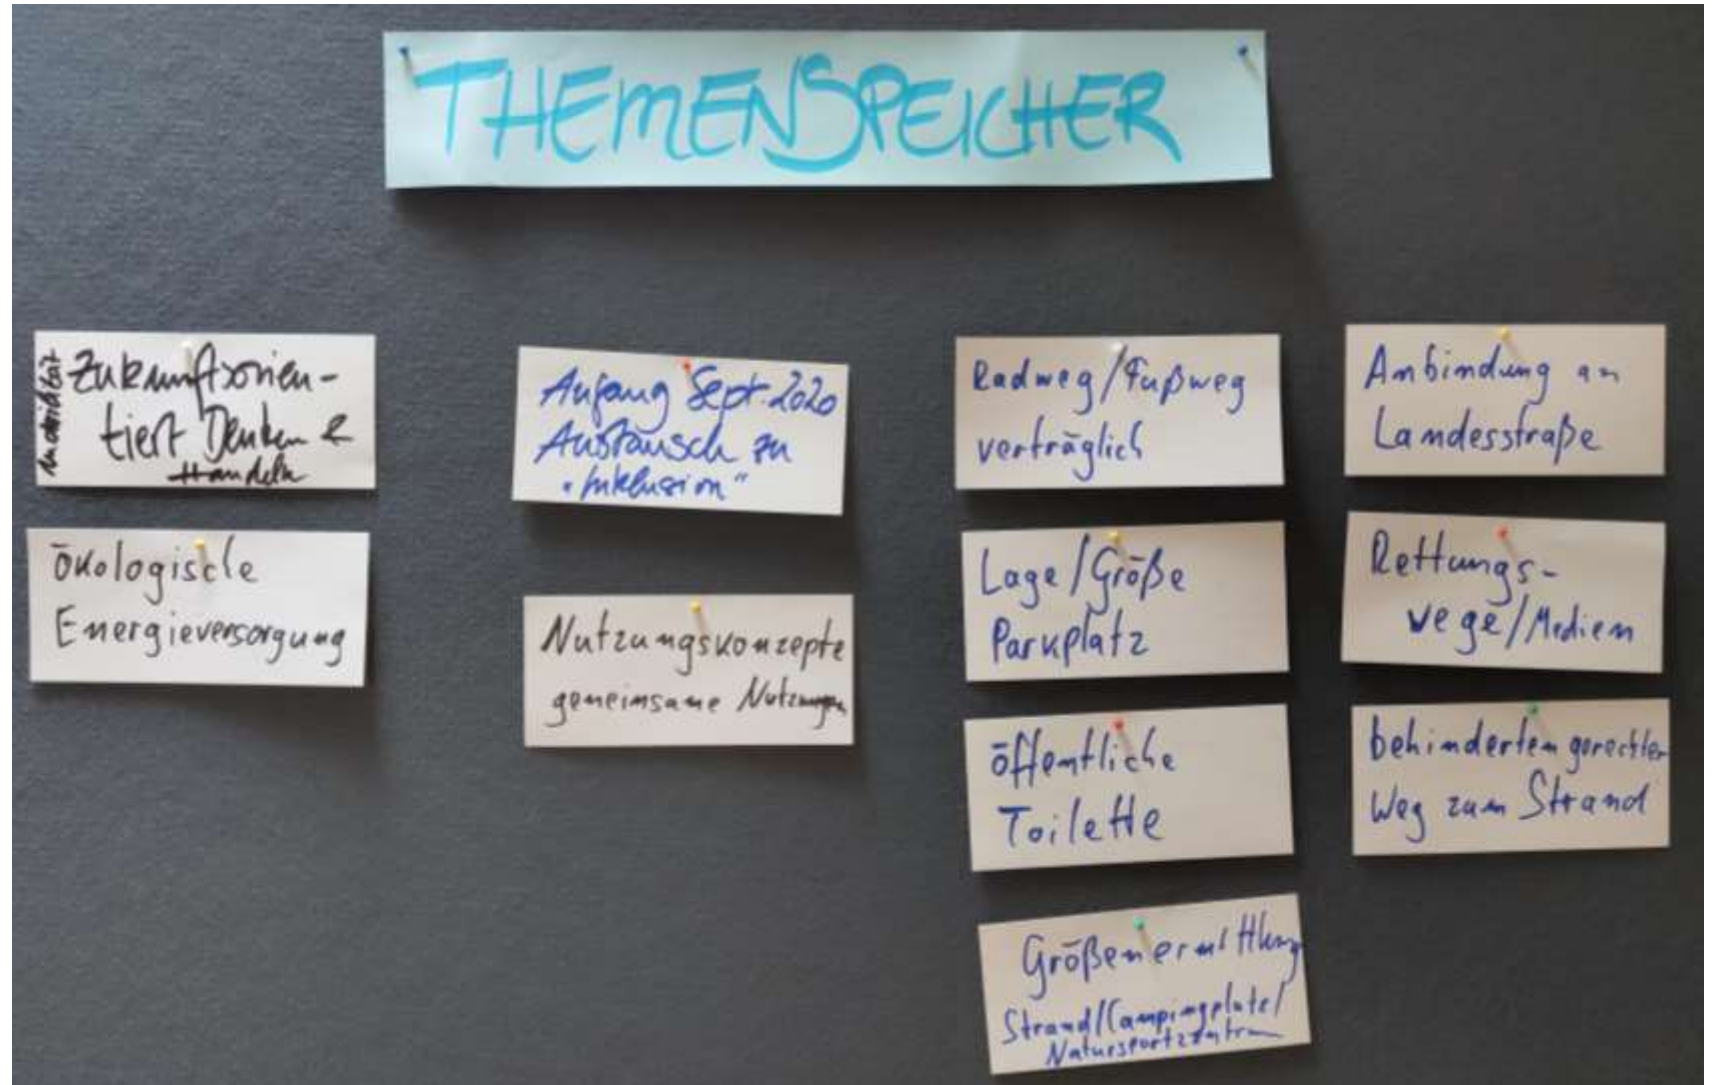 THEMENSPEICHER
Zukunftsorien-
tiert Denken &
Handeln
ökologische
Energieversorgung
Anfang Sept. 2020
Austausch zu
"Inklusion"
Nutzungskonzepte
gemeinsame Nutzungen
Radweg/Fußweg
verträglich
Lage/Größe
Parkplatz
öffentliche
Toilette
Größenermittlung
Strand/Campingplatz/
Natursportzentrum
Anbindung an
Landesstraße
Rettungs-
wege/Medien
behindertengerechter
Weg zum Strand